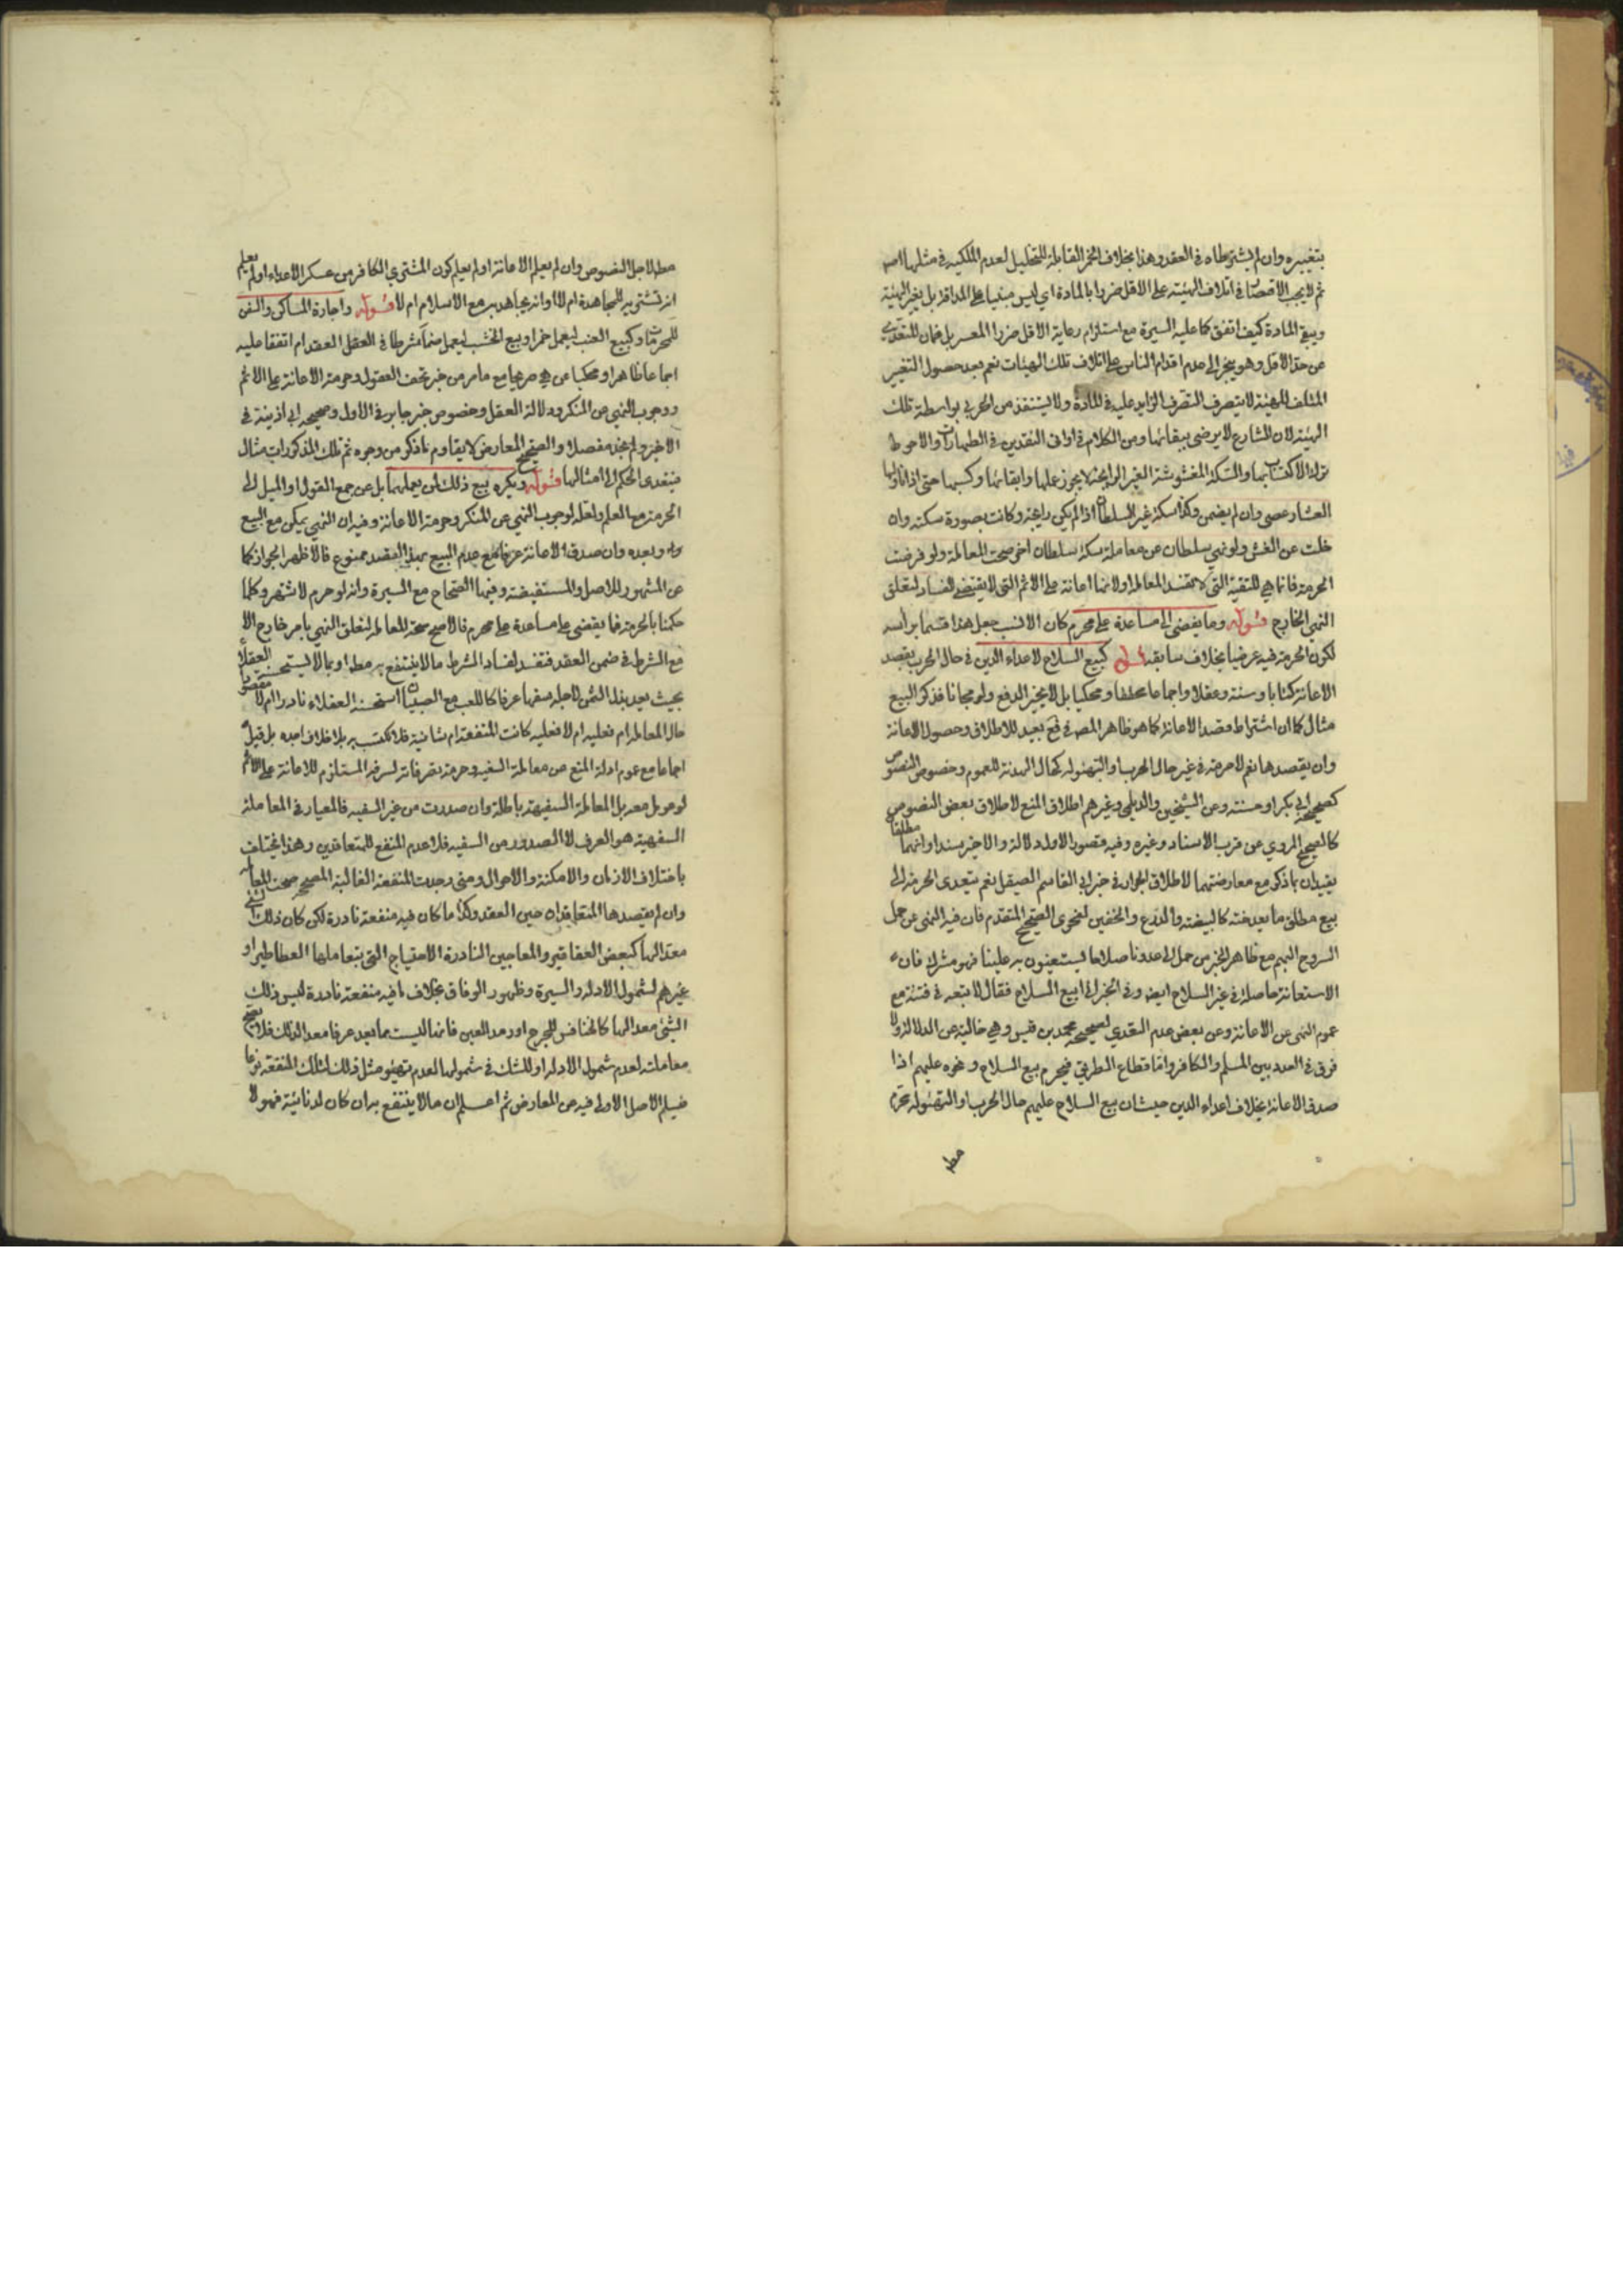 بتغييره وان لم يشترطاه في العقد وهذا بخلاف الخمر القابلة للتخليل لعدم الملكية في مثلها اصلا
ثم لا يجب الاقتصار في اتلاف الهيئة على الاقل ضررا بالمادة اي ليس مبنيا على المداقة بل يغير الهيئة
ويبقي المادة كيف اتفق كما عليه السيرة مع استلزام رعاية الاقل ضررا العسر بل ضمان المتعدي
عن حد الاقل وهو ينجر الى عدم اقدام الناس على اتلاف تلك الهيئات نعم بعد حصول التغيير
المتلف للهيئة لا يتصرف التصرف الزايد عليه في المادة ولا يستنقذ من الحربي بواسطة تلك
الهيئة لان الشارع لا يرضى ببقائها ومن الكلام في اواني النقدين في الطهارات والاحوط
ترك الاكتساب بها والسكة المغشوشة الغير الرايجة لا يجوز عملها وابقائها وكسبها حتى اذا ناولها
العشار عصى وان لم يضمن وكذا سكة غير السلطان اذا لم يكن رايجة وكانت بصورة سكته وان
خلت عن الغش ولو نهى سلطان عن معاملة سكة سلطان اخر صحت المعاملة ولو فرضت
الحرمة فانما هي للتقية التي لا تفسد المعاملة اولانها اعانة على الاثم التي لا يقتضي الفساد لتعلق
النهي الخارج قوله وما يفضي الى مساعدة على محرم كان الانسب جعل هذا قسما برأسه
لكون الحرمة فيه عرضيا بخلاف سابقه قوله كبيع السلاح لاعداء الدين في حال الحرب بقصد
الاعانة كتابا وسنة وعقلا واجماعا محققا ومحكيا بل لا يجيز الدفع ولو مجانا فذكر البيع
مثال كما ان اشتراط قصد الاعانة كما هو ظاهر المصـ في بعيد للاطلاق وحصول الاعانة
وان يقصدها نعم لا حرمة في غير حال الحرب او التهيؤ له كحال الهدنة للعموم وخصوص النصوص
كصحيحة ابي بكر او حسنته وعن الشيخين والديلمي وغيرهم اطلاق المنع لاطلاق بعض النصوص
كالصحيح المروي عن قرب الاسناد وغيره وفيه قصور الاول دلالة والاخير سندا وانهما مطلقان
يقيدان بما ذكر مع معارضتهما لاطلاق الجواز في خبر ابي القاسم الصيقل نعم يتعدى الحرمة الى
بيع مطلق ما يعد جنة كالبيضة والدرع والخفين لفحوى الصحيح المتقدم فان فيه النهي عن حمل
السروج اليهم مع ظاهر الخبر من حمل الى عدونا سلاحا يستعينون به علينا فهو مشرك فان
الاستعانة حاصلة في غير السلاح ايضا وفي الخبر اني ابيع السلاح فقال لا تبعه في فتنة مع
عموم النهي عن الاعانة وعن بعض عدم التعدي لصحيحة محمد بن قيس وهي خالية عن الدلالة ولا
فرق في العدو بين المسلم والكافر واما قطاع الطريق فيحرم بيع السلاح ونحوه عليهم اذا
صدق الاعانة بخلاف اعداء الدين حيث ان بيع السلاح عليهم حال الحرب او التهيؤ له محرم
مطـ
مطـ لاجل النصوص وان لم يعلم الاعانة او لم يعلم كون المشتري الكافر من عسكر الاعداء او لم يعلم
انه تشتريه للمجاهدة ام لا او انه يجاهد به مع الاسلام ام لا قوله واجارة المساكن والسفن
للمحرمات وكبيع العنب ليعمل خمرا وبيع الخشب ليعمل صنما شرطا في العقد ام اتفقا عليه
اجماعا ظاهرا ومحكيا عن صريحا مع ما مر من خبر تحف العقول وحرمة الاعانة على الاثم
ووجوب النهي عن المنكر ودلالة العقل وخصوص خبر جابر في الاول وصحيحة ابن اذينة في
الاخير ولم نجد مفصلا والصحيح المعارض لا يقاوم ما ذكر من وجوه ثم تلك المذكورات مثال
فيتعدى الحكم الى امثالها قوله ويكره بيع ذلك لمن يعملهما بل عن جمع القول او الميل الى
الحرمة مع العلم ولعله لوجوب النهي عن المنكر وحرمة الاعانة وفيه ان النهي يمكن مع البيع
وله وبعده وان صدق الاعانة عرفا مع عدم البيع بهذا القصد ممنوع فالاظهر الجواز كما
عن المشهور للاصل والمستفيضة وفيها الصحاح مع السيرة وانه لو حرم لاشتهر وكلما
حكمنا بالحرمة فما يفضي على مساعدة على محرم فالاصح صحة المعاملة لتعلق النهي بامر خارج الا
مع الشرط في ضمن العقد فتفسد لفساد الشرط ما لا ينتفع به مطـ او بما لا يستحسنه العقلاء
بحيث يعد بذل الثمن لاجله سفها عرفا كاللعب مع الصبيان استحسنه العقلاء نادرا ام لا مقصورا
حال المعاملة ام فعلية ام لا فعلية كانت المنفعة ام شأنية فلا يكتسب به بلا خلاف اجده بل قيل
اجماعا مع عموم ادلة المنع عن معاملة السفيه وحرمة تصرفاته لسرفه المستلزم للاعانة على الاثم
لو عومل معه بل المعاملة السفيهة باطلة وان صدرت من غير السفيه فالمعيار في المعاملة
السفهية هو العرف لا الصدور من السفيه فلا عدم المنفع للمتعاقدين وهذا يختلف
باختلاف الازمان والامكنة والاحوال ومتى وجدت المنفعة الغالبة المصحح صحت المعاملة
وان لم يقصدها المتعاقدان حين العقد وكذا ما كان فيه منفعة نادرة لكن كان ذلك الشي
معدا لها كبعض العقاقير والمعاجين النادرة الاحتياج التي يتعاملها العطاطير او
غيرهم لشمول الادلة والسيرة وظهور الوفاق بخلاف ما فيه منفعة نادرة ليس ذلك
الشي معدا لها كالخنافس للجرح اورمد العين فانها ليست مما يعد عرفا معدا لذلك فلا يصح
معاملته لعدم شمول الادلة او للشك في شمولها لعدم تهيؤ مثل ذلك لتلك المنفعة نوعا
فيسلم الاصل الاولي فيه عن المعارض ثم اعلم ان ما لا ينتفع به ان كان لدنائية فهو لا